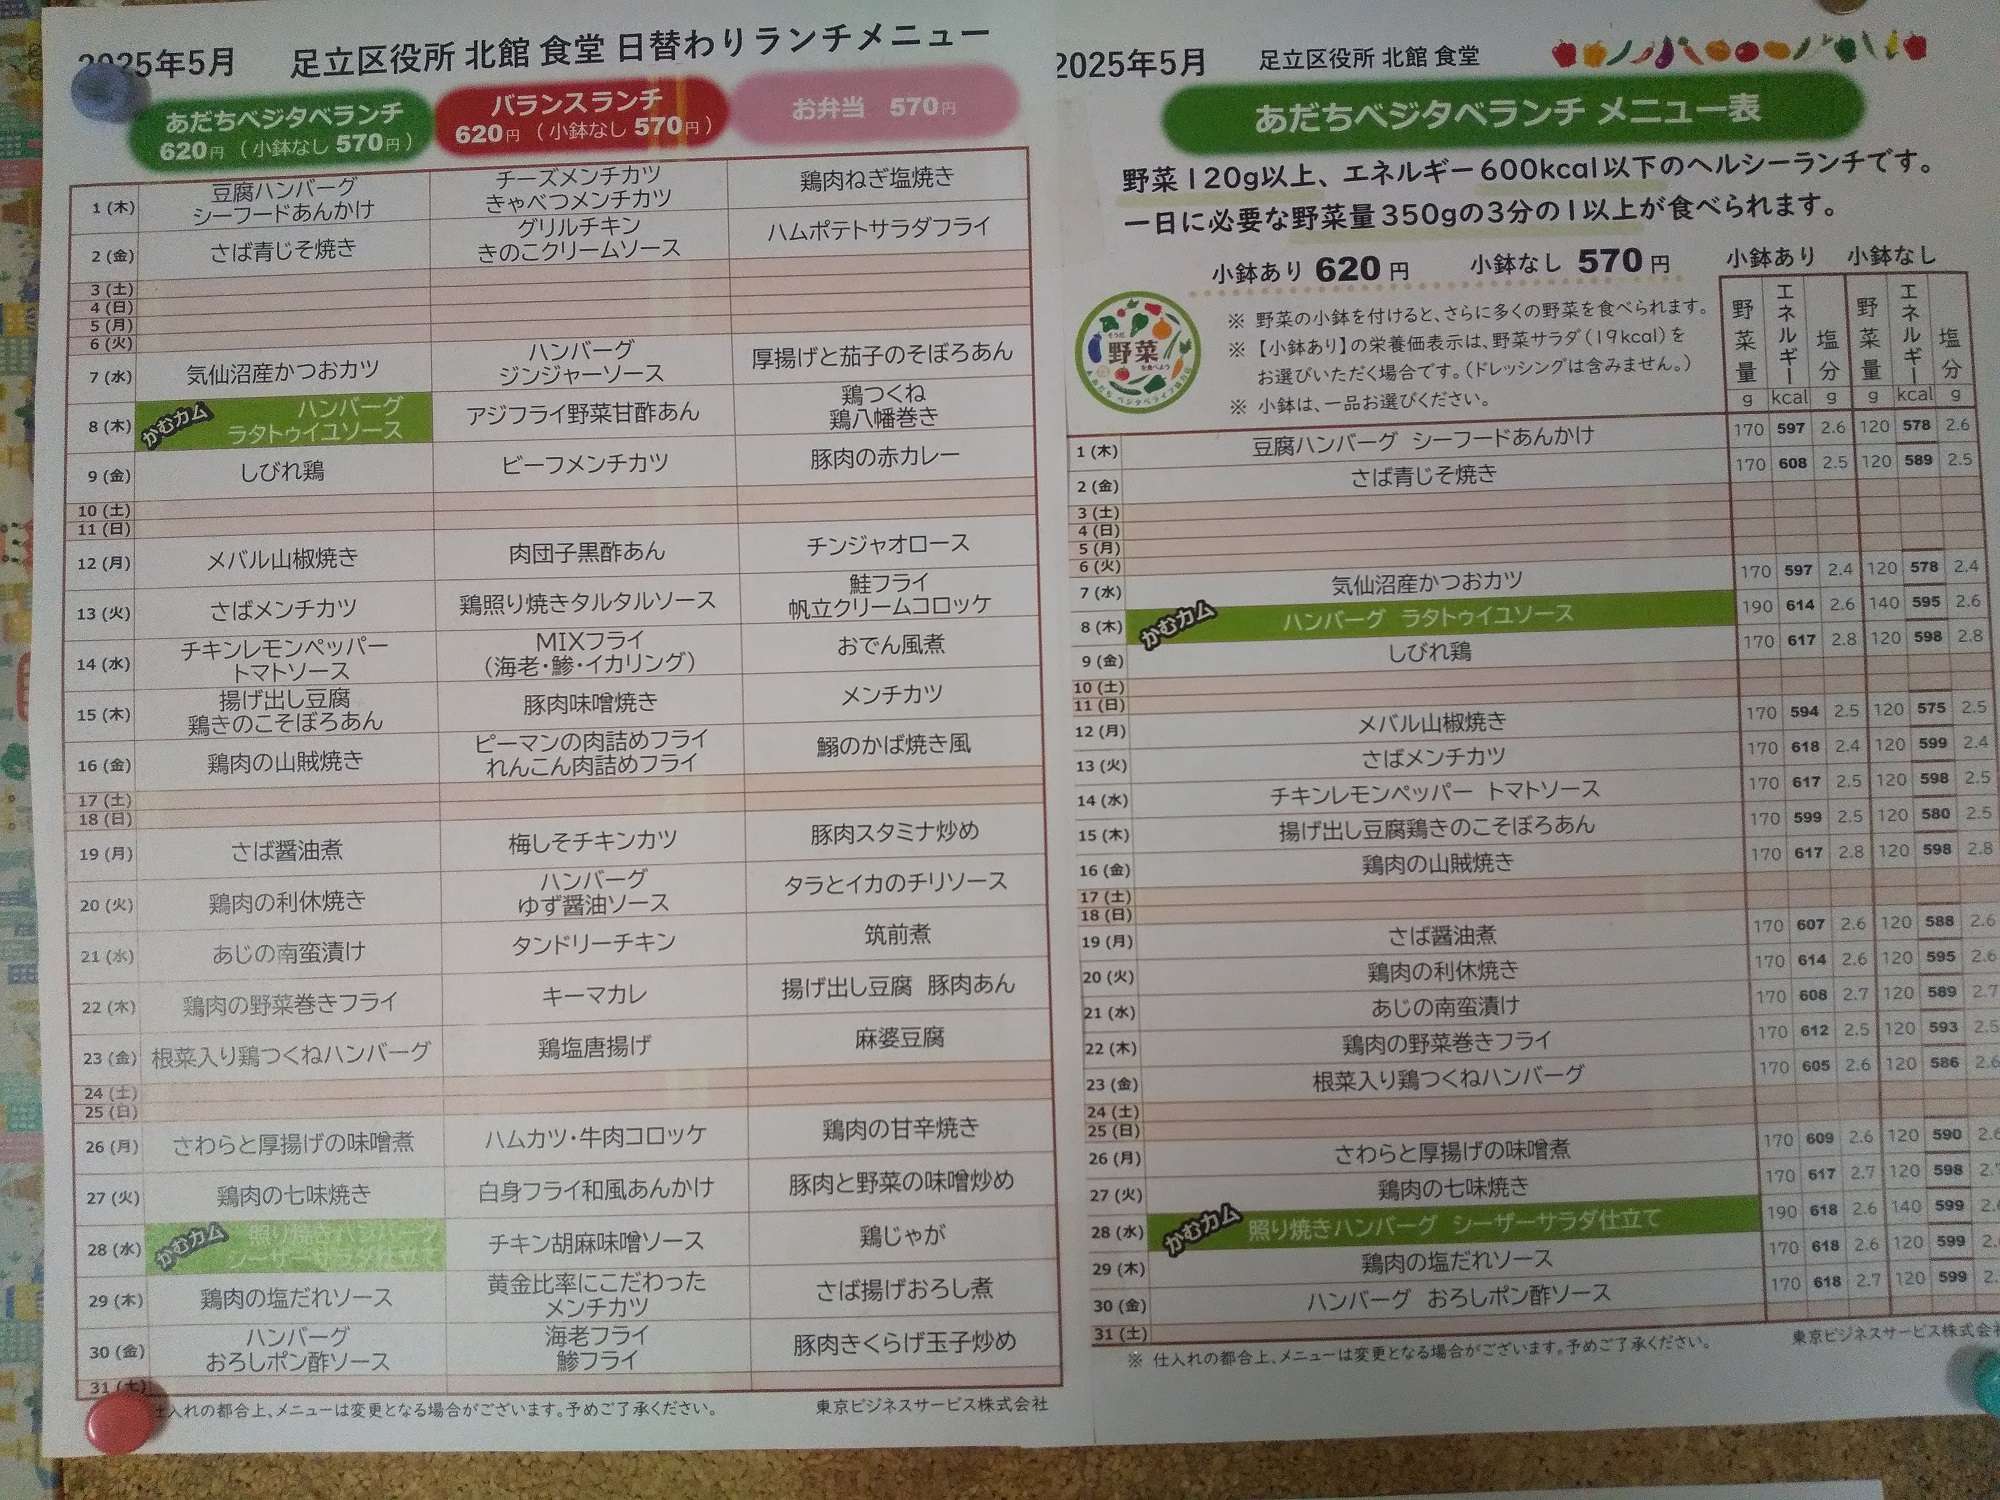 2025年5月 足立区役所 北館 食堂 日替わりランチメニュー
あだちベジタベランチ
620円（小鉢なし570円）
バランスランチ
620円（小鉢なし570円）
お弁当 570円
1(木)
豆腐ハンバーグ
シーフードあんかけ
チーズメンチカツ
きゃべつメンチカツ
鶏肉ねぎ塩焼き
2(金)
さば青じそ焼き
グリルチキン
きのこクリームソース
ハムポテトサラダフライ
3(土)
4(日)
5(月)
6(火)
7(水)
気仙沼産かつおカツ
ハンバーグ
ジンジャーソース
厚揚げと茄子のそぼろあん
8(木)
かむカム
ハンバーグ
ラタトゥイユソース
アジフライ野菜甘酢あん
鶏つくね
鶏八幡巻き
9(金)
しびれ鶏
ビーフメンチカツ
豚肉の赤カレー
10(土)
11(日)
12(月)
メバル山椒焼き
肉団子黒酢あん
チンジャオロース
13(火)
さばメンチカツ
鶏照り焼きタルタルソース
鮭フライ
帆立クリームコロッケ
14(水)
チキンレモンペッパー
トマトソース
MIXフライ
（海老・鯵・イカリング）
おでん風煮
15(木)
揚げ出し豆腐
鶏きのこそぼろあん
豚肉味噌焼き
メンチカツ
16(金)
鶏肉の山賊焼き
ピーマンの肉詰めフライ
れんこん肉詰めフライ
鰯のかば焼き風
17(土)
18(日)
19(月)
さば醤油煮
梅しそチキンカツ
豚肉スタミナ炒め
20(火)
鶏肉の利休焼き
ハンバーグ
ゆず醤油ソース
タラとイカのチリソース
21(水)
あじの南蛮漬け
タンドリーチキン
筑前煮
22(木)
鶏肉の野菜巻きフライ
キーマカレ
揚げ出し豆腐 豚肉あん
23(金)
根菜入り鶏つくねハンバーグ
鶏塩唐揚げ
麻婆豆腐
24(土)
25(日)
26(月)
さわらと厚揚げの味噌煮
ハムカツ・牛肉コロッケ
鶏肉の甘辛焼き
27(火)
鶏肉の七味焼き
白身フライ和風あんかけ
豚肉と野菜の味噌炒め
28(水)
かむカム
照り焼きハンバーグ
シーザーサラダ仕立て
チキン胡麻味噌ソース
鶏じゃが
29(木)
鶏肉の塩だれソース
黄金比率にこだわった
メンチカツ
さば揚げおろし煮
30(金)
ハンバーグ
おろしポン酢ソース
海老フライ
鯵フライ
豚肉きくらげ玉子炒め
31(土)
仕入れの都合上、メニューは変更となる場合がございます。予めご了承ください。
東京ビジネスサービス株式会社
2025年5月 足立区役所 北館 食堂
あだちベジタベランチ メニュー表
野菜120g以上、エネルギー600kcal以下のヘルシーランチです。
一日に必要な野菜量350gの3分の1以上が食べられます。
小鉢あり 620円 小鉢なし 570円
野菜
※ 野菜の小鉢を付けると、さらに多くの野菜を食べられます。
※ 【小鉢あり】の栄養価表示は、野菜サラダ(19kcal)を
お選びいただく場合です。（ドレッシングは含みません。）
※ 小鉢は、一品お選びください。
小鉢あり 小鉢なし
野菜量 エネルギー 塩分 野菜量 エネルギー 塩分
g kcal g g kcal g
1(木) 豆腐ハンバーグ シーフードあんかけ 170 597 2.6 120 578 2.6
2(金) さば青じそ焼き 170 608 2.5 120 589 2.5
3(土)
4(日)
5(月)
6(火)
7(水) 気仙沼産かつおカツ 170 597 2.4 120 578 2.4
8(木) かむカム ハンバーグ ラタトゥイユソース 190 614 2.6 140 595 2.6
9(金) しびれ鶏 170 617 2.8 120 598 2.8
10(土)
11(日)
12(月) メバル山椒焼き 170 594 2.5 120 575 2.5
13(火) さばメンチカツ 170 618 2.4 120 599 2.4
14(水) チキンレモンペッパー トマトソース 170 617 2.5 120 598 2.5
15(木) 揚げ出し豆腐鶏きのこそぼろあん 170 599 2.5 120 580 2.5
16(金) 鶏肉の山賊焼き 170 617 2.8 120 598 2.8
17(土)
18(日)
19(月) さば醤油煮 170 607 2.6 120 588 2.6
20(火) 鶏肉の利休焼き 170 614 2.6 120 595 2.6
21(水) あじの南蛮漬け 170 608 2.7 120 589 2.7
22(木) 鶏肉の野菜巻きフライ 170 612 2.5 120 593 2.5
23(金) 根菜入り鶏つくねハンバーグ 170 605 2.6 120 586 2.6
24(土)
25(日)
26(月) さわらと厚揚げの味噌煮 170 609 2.6 120 590 2.6
27(火) 鶏肉の七味焼き 170 617 2.7 120 598
28(水) かむカム 照り焼きハンバーグ シーザーサラダ仕立て 190 618 2.6 140 599
29(木) 鶏肉の塩だれソース 170 618 2.6 120 599
30(金) ハンバーグ おろしポン酢ソース 170 618 2.7 120 599
31(土)
※ 仕入れの都合上、メニューは変更となる場合がございます。予めご了承ください。
東京ビジネスサービス株式会社